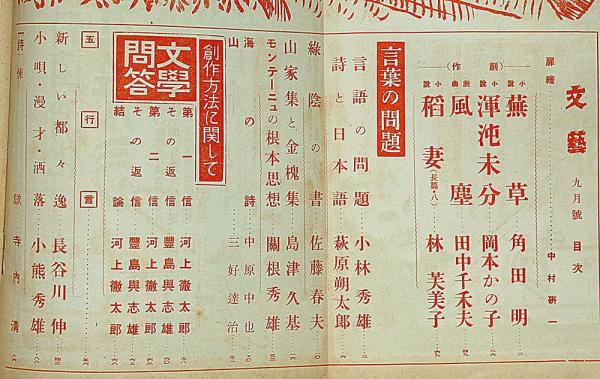 文藝 九月號 目次
扉繪 中村研一
(創作)
小說 蕪草 角田明
小說 渾沌未分 岡本かの子
戲曲 風塵 田中千禾夫
小說 稻妻(長篇・八) 林芙美子
言葉の問題
言語の問題 小林秀雄
詩と日本語 萩原朔太郎
綠陰の書 佐藤春夫
山家集と金槐集 島津久基
モンテーニュの根本思想 關根秀雄
海の詩 中原中也
山 三好達治
創作方法に関して
文學問答
第一信 河上徹太郎
その返信 豐島與志雄
第二信 河上徹太郎
その返信 豐島與志雄
結論 河上徹太郎
五行言
新しい都々逸 長谷川伸
小唄・漫才・洒落 小熊秀雄
獄寺内清